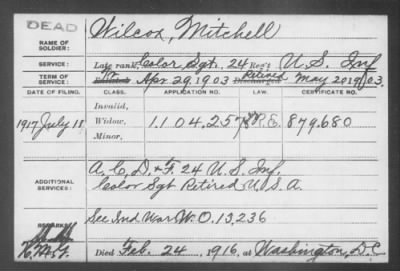 DEAD
NAME OF SOLDIER: Wilcox, Mitchell
SERVICE: Late rank, Color Sgt. 24 Reg't U.S. Inf
TERM OF SERVICE: Enlisted Apr 29, 1903 Discharged Retired May 20, 1903.
DATE OF FILING. CLASS. APPLICATION NO. LAW. CERTIFICATE NO.
Invalid,
1917 July 18 Widow, 1.104.257 R.E. 879.680
Minor,
ADDITIONAL SERVICES: A, C, D, & F. 24 U.S. Inf.
Color Sgt Retired U.S.A.
REMARKS: See Ind War W.O. 13,236
Died Feb. 24, 1916, at Washington, D.C.